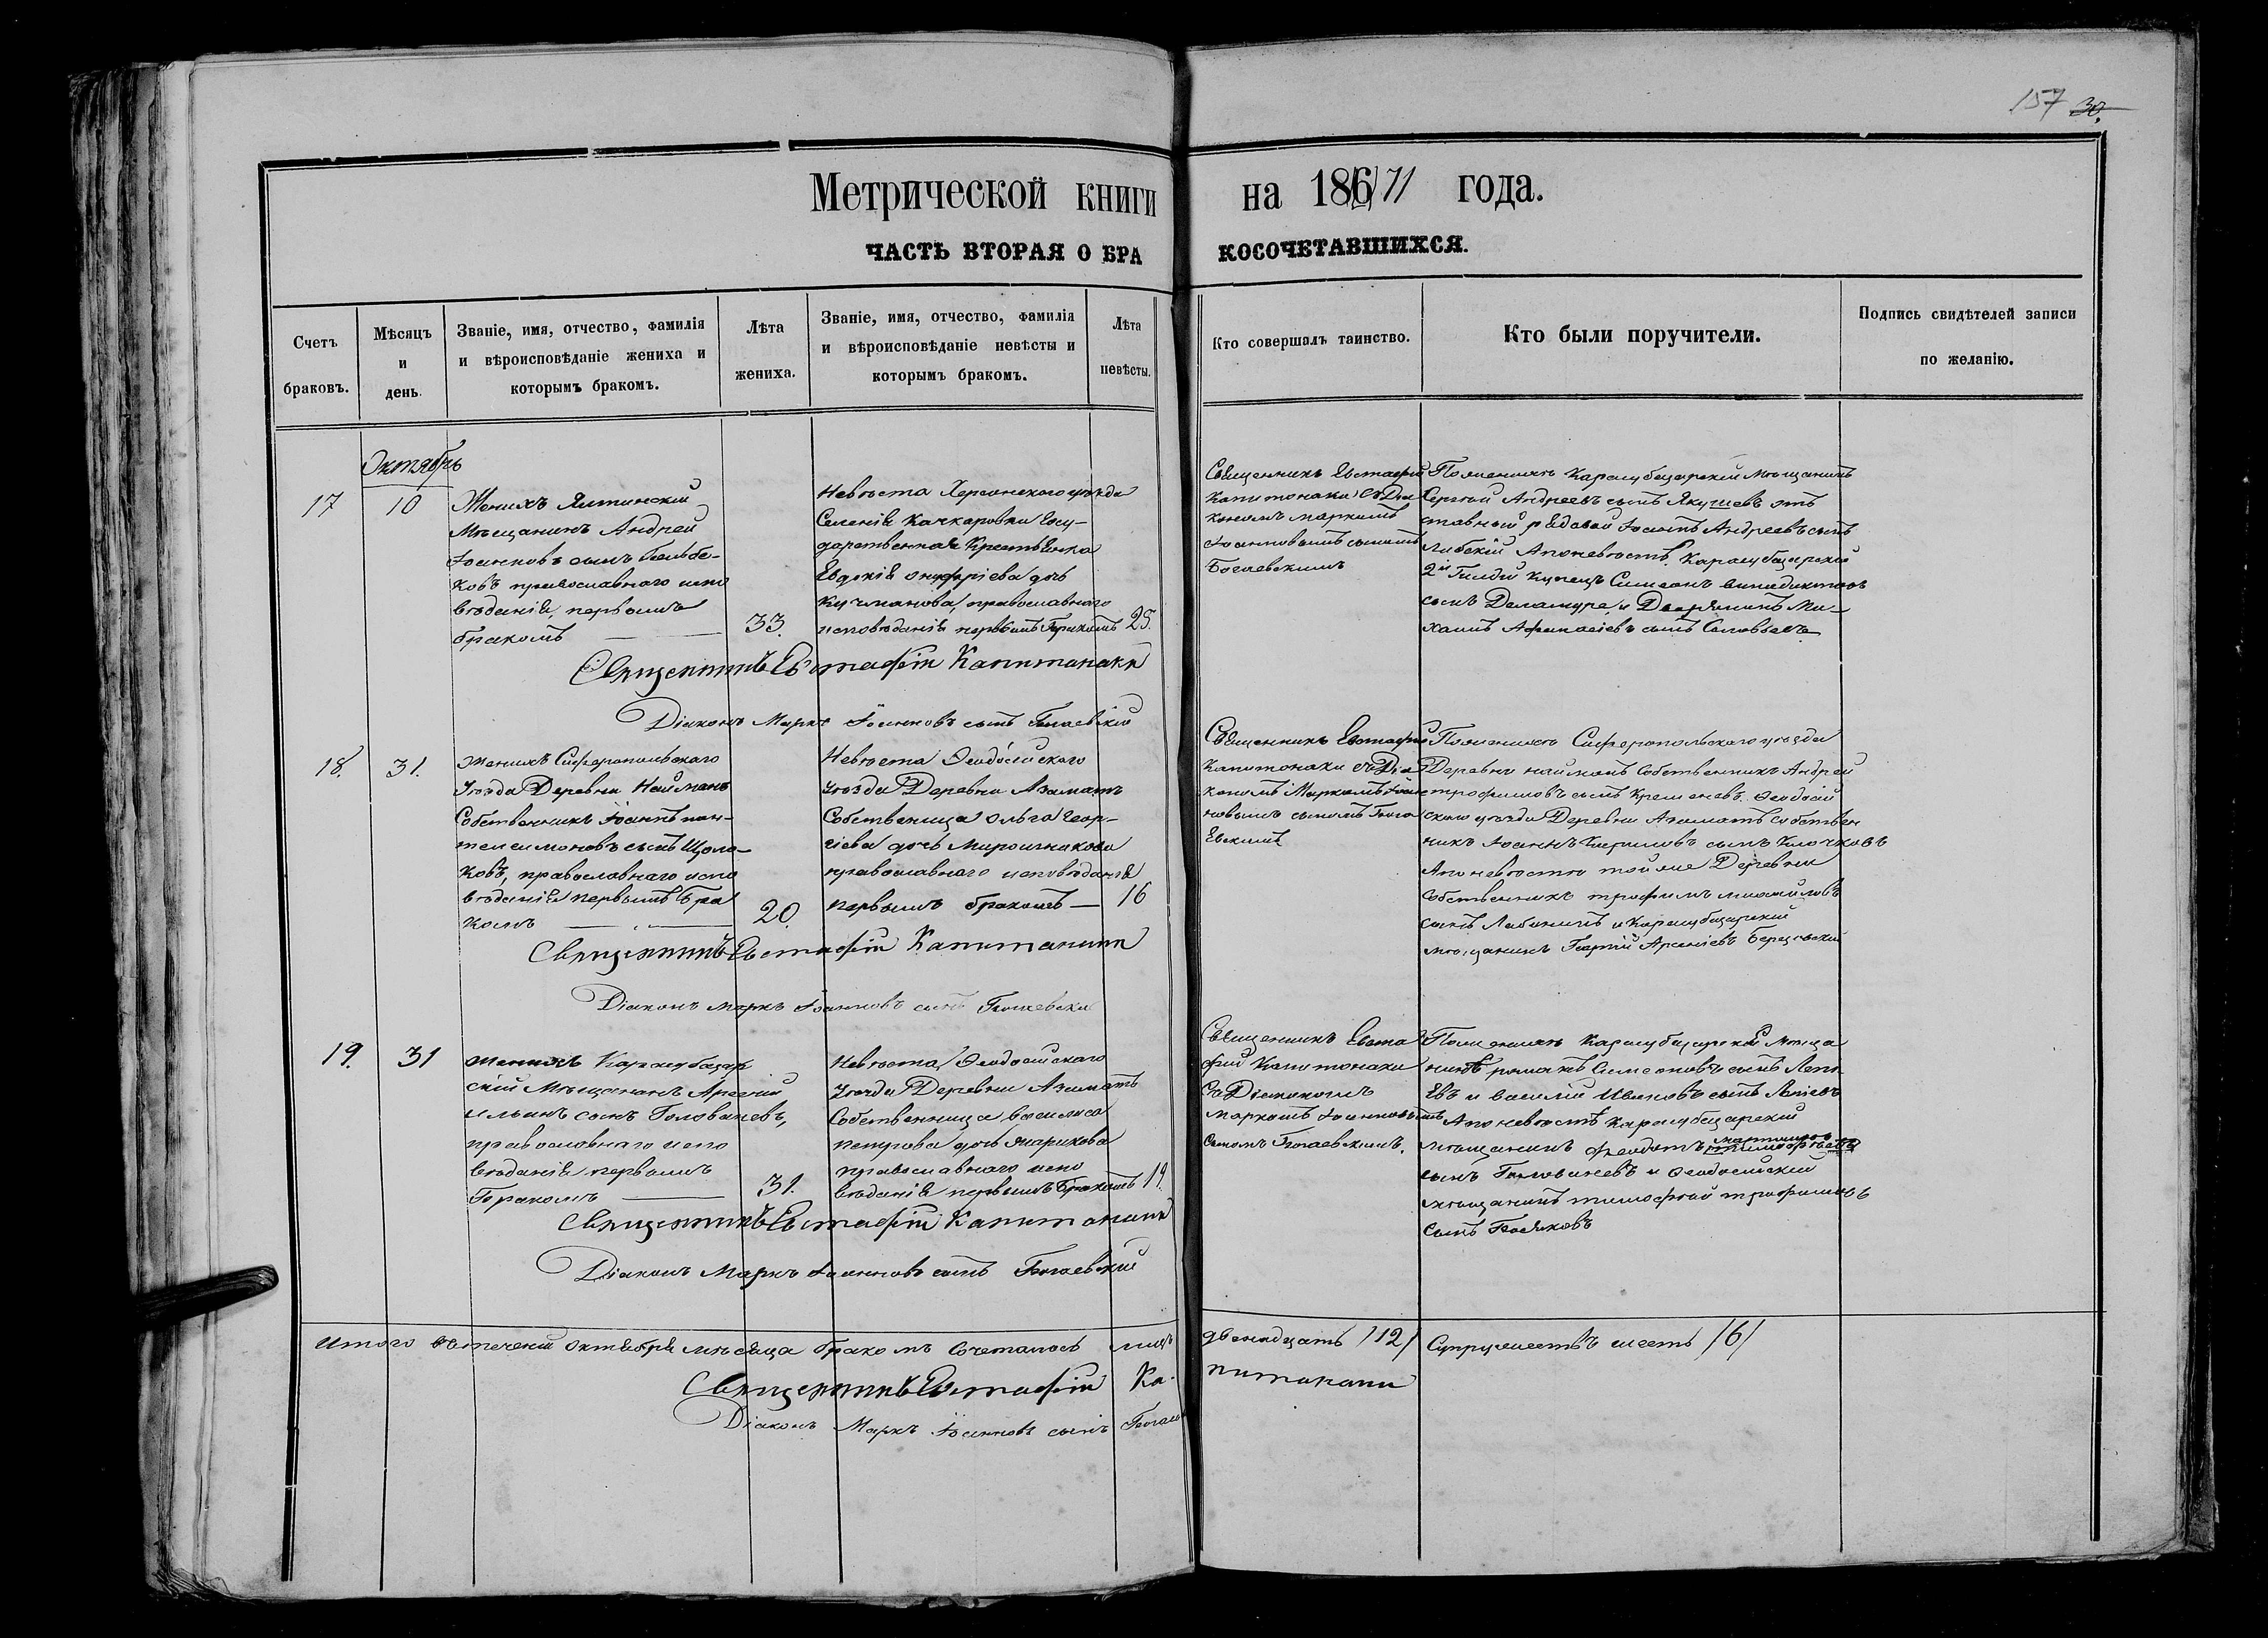 157 30.
Метрической книги на 18671 года.
ЧАСТЬ ВТОРАЯ О БРАКОСОЧЕТАВШИХСЯ.
Счетъ браковъ.
Мѣсяцъ и день.
Званіе, имя, отчество, фамилія
и вѣроисповѣданіе жениха и
которымъ бракомъ.
Лѣта жениха.
Званіе, имя, отчество, фамилія
и вѣроисповѣданіе невѣсты и
которымъ бракомъ.
Лѣта невѣсты.
Кто совершалъ таинство.
Кто были поручители.
Подпись свидѣтелей записи
по желанію.
Октябрь
17
10
Женихъ Ялтинскій
Мѣщанинъ Андрей
Іоанновъ сынъ
ковъ православнаго испо
вѣданія, первымъ
бракомъ
33.
Невѣста Херсонскаго уѣзда
Селенія Качкаровки Госу-
дарственная Крестьянка
Евдокія Онуфріева дочь
Кучманова, православнаго
исповѣданія первымъ бракомъ
25.
Священникъ Евстафій
Капитонаки съ Діа
кономъ Маркомъ
Іоанновымъ сыномъ
Богаевскимъ
По женихѣ Карасубазарскій Мѣщанинъ
Сергѣй Андреевъ сынъ Якушевъ от
ставный рядовой Іоаннъ Андреевъ сынъ
Либскій А по невѣстѣ, Карасубазарскій
2й Гильди Купецъ Симеонъ Винедиктовъ
сынъ Деламуре, и Дворянинъ Ми-
хаилъ Афанасіевъ сынъ Соловьевъ
Священникъ Евстафій Капитанаки
Діаконъ Маркъ Іоанновъ сынъ Богаевскій
18.
31.
Женихъ Симферопольскаго
Уѣзда Деревни Найманъ
Собственникъ Іоаннъ пан-
телеимоновъ сынъ Щоло-
ковъ, православнаго испо
вѣданія первымъ Бра
комъ
20.
Невѣста Ѳеодосійскаго
Уѣзда Деревни Азаматъ
Собственница Ольга Геор-
гіева дочь Мирошникова
православнаго исповѣданія
первымъ бракомъ
16
Священникъ Евстафій
Капитонаки съ Діа
кономъ Маркомъ Іоан
новымъ сыномъ Богa
Евскимъ
По женихѣ Симферопольскаго уѣзда
Деревни найманъ Собственникъ Андрей
трофимовъ сынъ Кременевъ. Ѳеодосій
скаго уѣзда Деревни Азаматъ Собствен
никъ Іоаннъ Кириловъ сынъ Клочковъ
А по невѣстѣ тойже Деревни
Собственникъ трофимъ
сынъ и Карасубазарскій
мѣщанинъ Георгій Арсеніевъ
Священникъ Евстафій Капитанаки
Діаконъ Маркъ Іоанновъ сынъ Богаевскій
19.
31
женихъ Карасубазар
скій Мѣщанинъ Арсеній
ильинъ сынъ Головачевъ,
православнаго испо
вѣданія первымъ
Бракомъ
31.
Невѣста Ѳеодосійскаго
Уѣзда Деревни Азаматъ
Собственница василиса
петрова дочь жарикова
православнаго испо
вѣданія первымъ Бракомъ
19.
Священникъ Евста
фій Капитонаки
Съ Діакономъ
маркомъ Іоанновымъ
Сыномъ Богаевскимъ.
По женихѣ Карасубазарскій Мѣща
нинъ романъ Симеоновъ сынъ
Евъ и василій Ивановъ сынъ
А по невѣстѣ Карасубазарскій
мѣщанинъ феодотъ мартиновъ тимофѣевъ
сынъ Головачевъ и Ѳеодосійскій
мѣщанинъ тимофѣй трофимовъ
сынъ
Священникъ Евстафій Капитанаки
Діаконъ Маркъ Іоанновъ сынъ Богаевскій
Итого въ теченіи Октября мѣсяца бракомъ сочеталось лицъ двенадцать /12/ Супружествъ шесть /6/
Священникъ Евстафій Капитанаки
Діаконъ Маркъ Іоанновъ сынъ Богаев